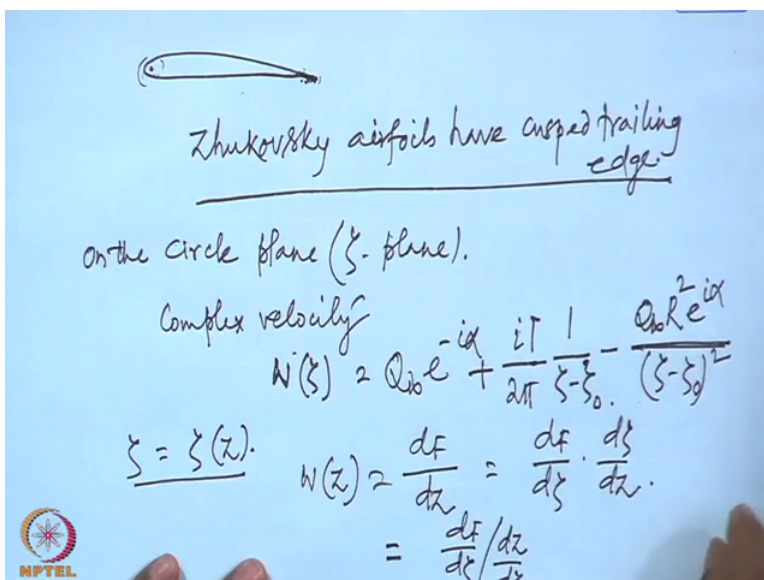 Zhukovsky airfoils have cusped trailing
edge.
on the circle plane (ζ-plane).
Complex velocity
W(ζ) = Q∞ e^{-iα} + iΓ/2π 1/(ζ-ζ₀) - Q∞ R² e^{iα}/(ζ-ζ₀)²
ζ = ζ(z). W(z) = dF/dz = dF/dζ · dζ/dz.
= dF/dζ / dz/dζ
NPTEL